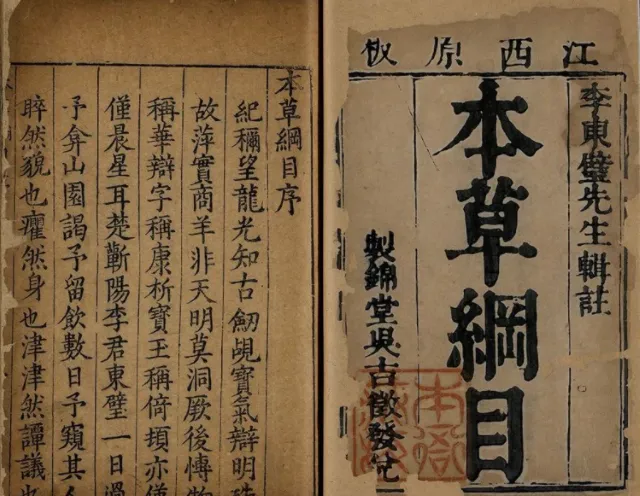 江西原板
李東璧先生輯註
本草綱目
製錦堂吳吉徵發兌
本草綱目序
紀稱望龍光知古劒覘寶氣辯明珠
故萍實商羊非天明莫洞厥後博物
稱華辯字稱康析寶玉稱倚頓亦僅
僅晨星耳楚蘄陽李君東璧一日過
予弇山園謁予留飲數日予窺其人
睟然貌也癯然身也津津然譚議也